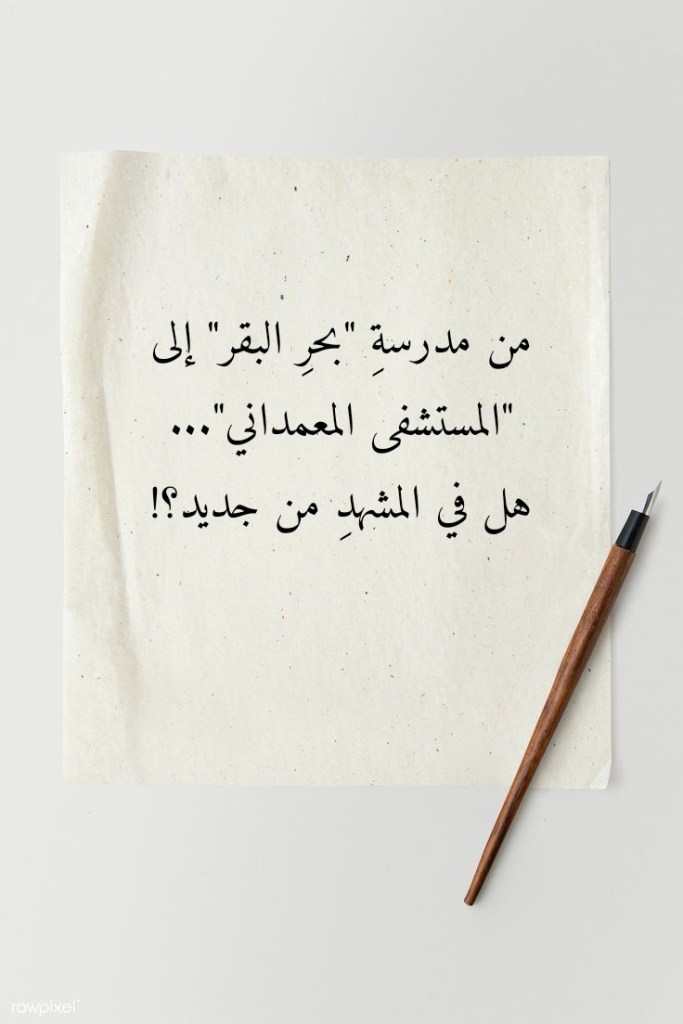 من مدرسةِ "بحرِ البقر" إلى
"المستشفى المعمداني"...
هل في المشهدِ من جديد؟!
rawpixel